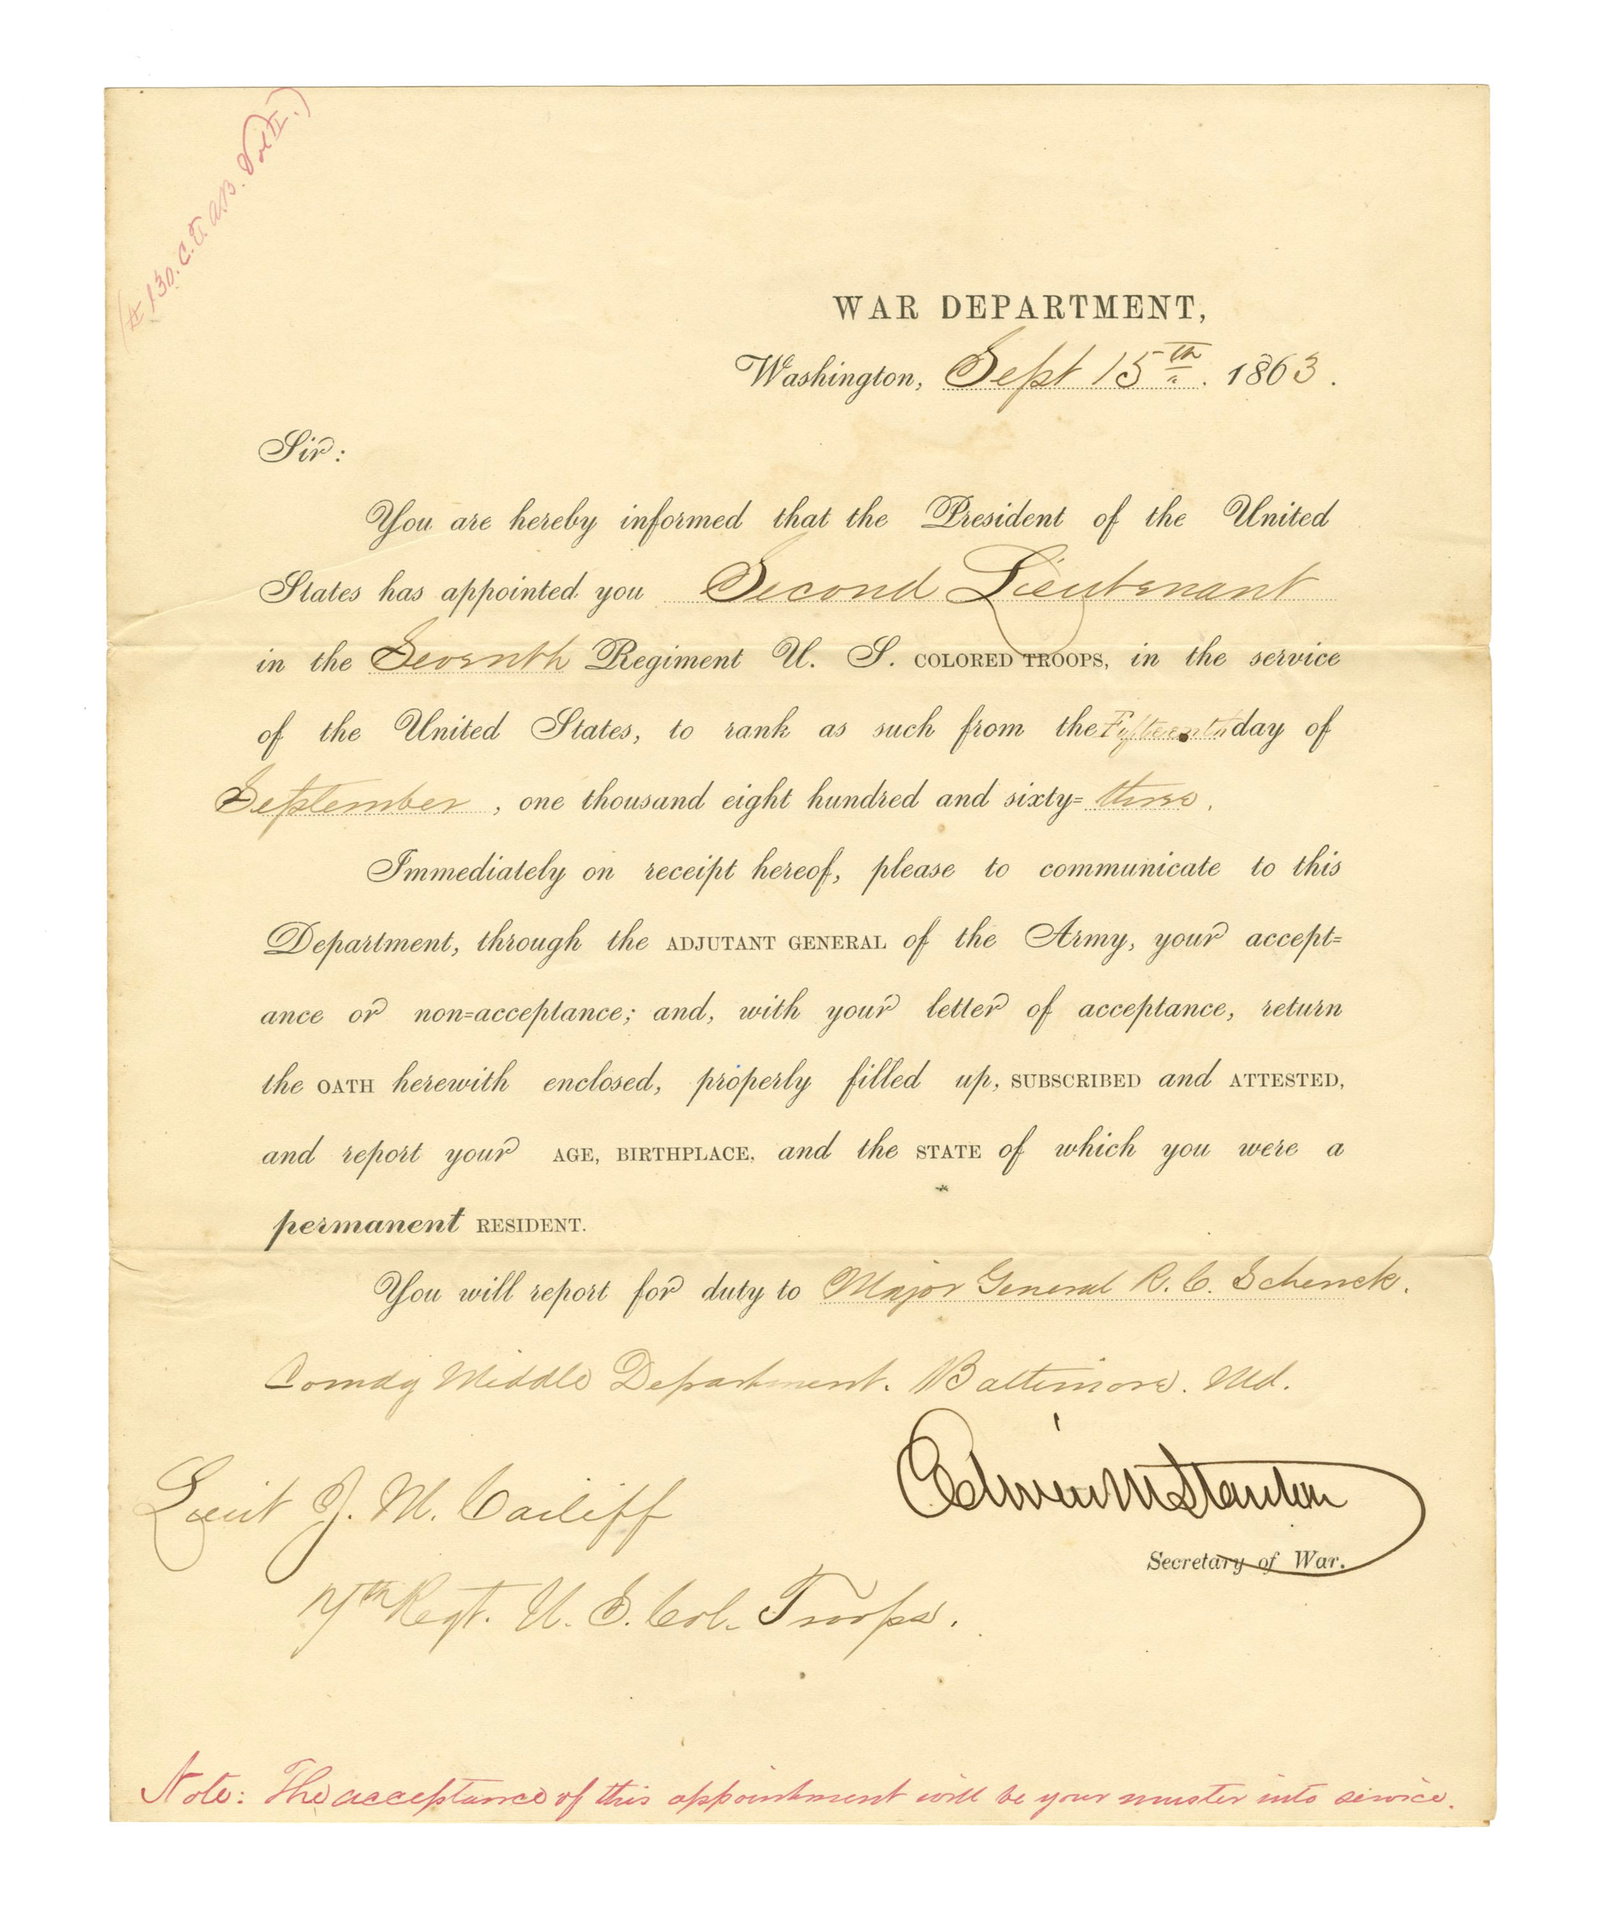 WAR DEPARTMENT,
Washington, Sept 15th. 1863.
Sir:
You are hereby informed that the President of the United
States has appointed you Second Lieutenant
in the Seventh Regiment U. S. COLORED TROOPS, in the service
of the United States, to rank as such from the Fifteenth day of
September, one thousand eight hundred and sixty=three.
Immediately on receipt hereof, please to communicate to this
Department, through the ADJUTANT GENERAL of the Army, your accept=
ance or non=acceptance; and, with your letter of acceptance, return
the OATH herewith enclosed, properly filled up, SUBSCRIBED and ATTESTED,
and report your AGE, BIRTHPLACE, and the STATE of which you were a
permanent RESIDENT.
You will report for duty to Major General R. C. Schenck.
Comdg Middle Department. Baltimore. Md.
Edwin M Stanton
Secretary of War.
Lieut J. M. Cailiff
7th Regt. U. S. Col. Troops.
Note: The acceptance of this appointment will be your muster into service.